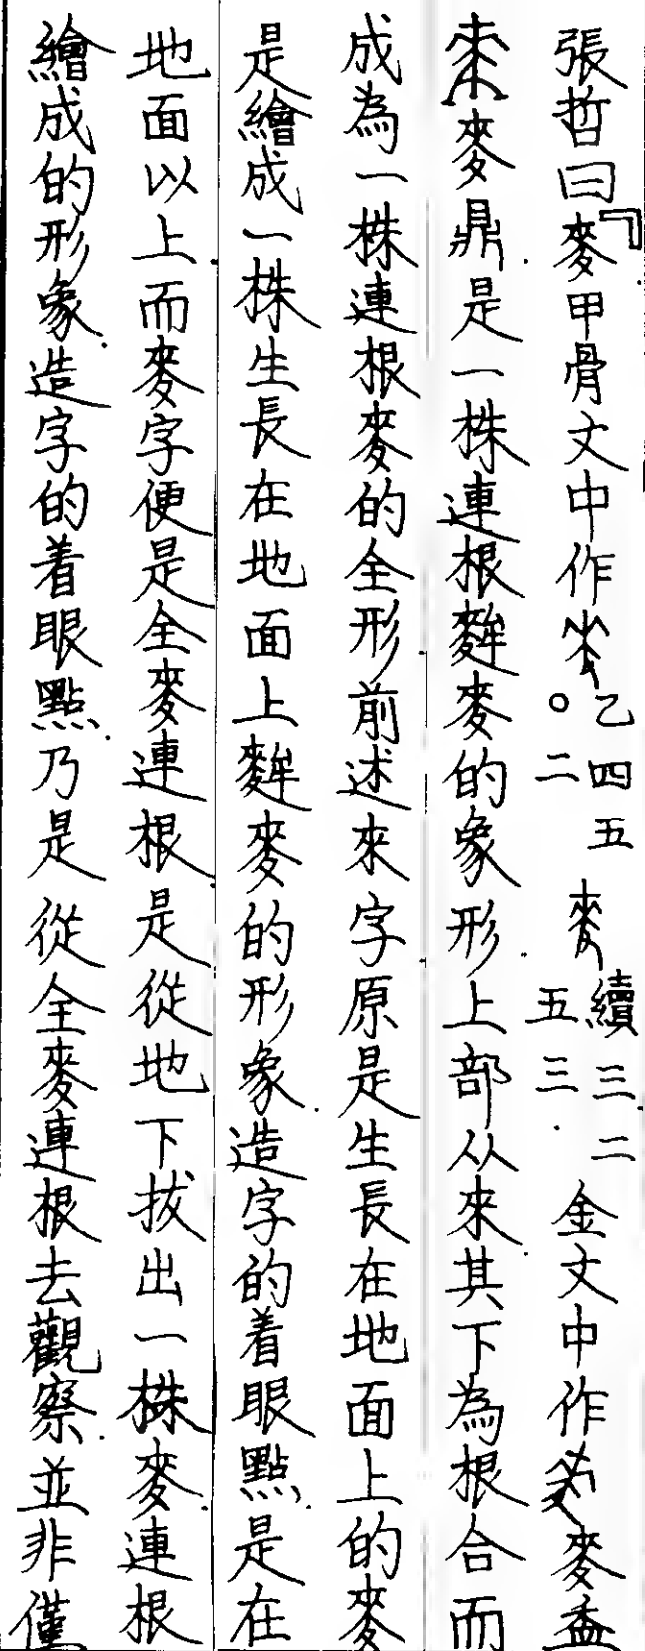 張哲曰『麥甲骨文中作 乙四五〇二 續三.二五.三 金文中作 麥盉
 麥鼎.是一株連根麰麥的象形.上部从來.其下為根.合而
成為一株連根麥的全形.前述來字.原是生長在地面上的麥
是繪成一株生長在地面上麰麥的形象.造字的着眼點.是在
地面以上.而麥字便是全麥連根.是從地下拔出一株麥.連根
繪成的形象.造字的着眼點.乃是從全麥連根去觀察.並非僅